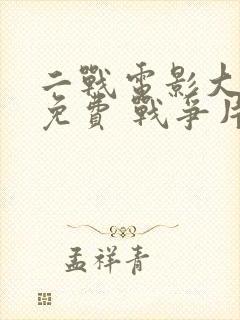 二戰電影大
免費 戰爭片
孟祥青